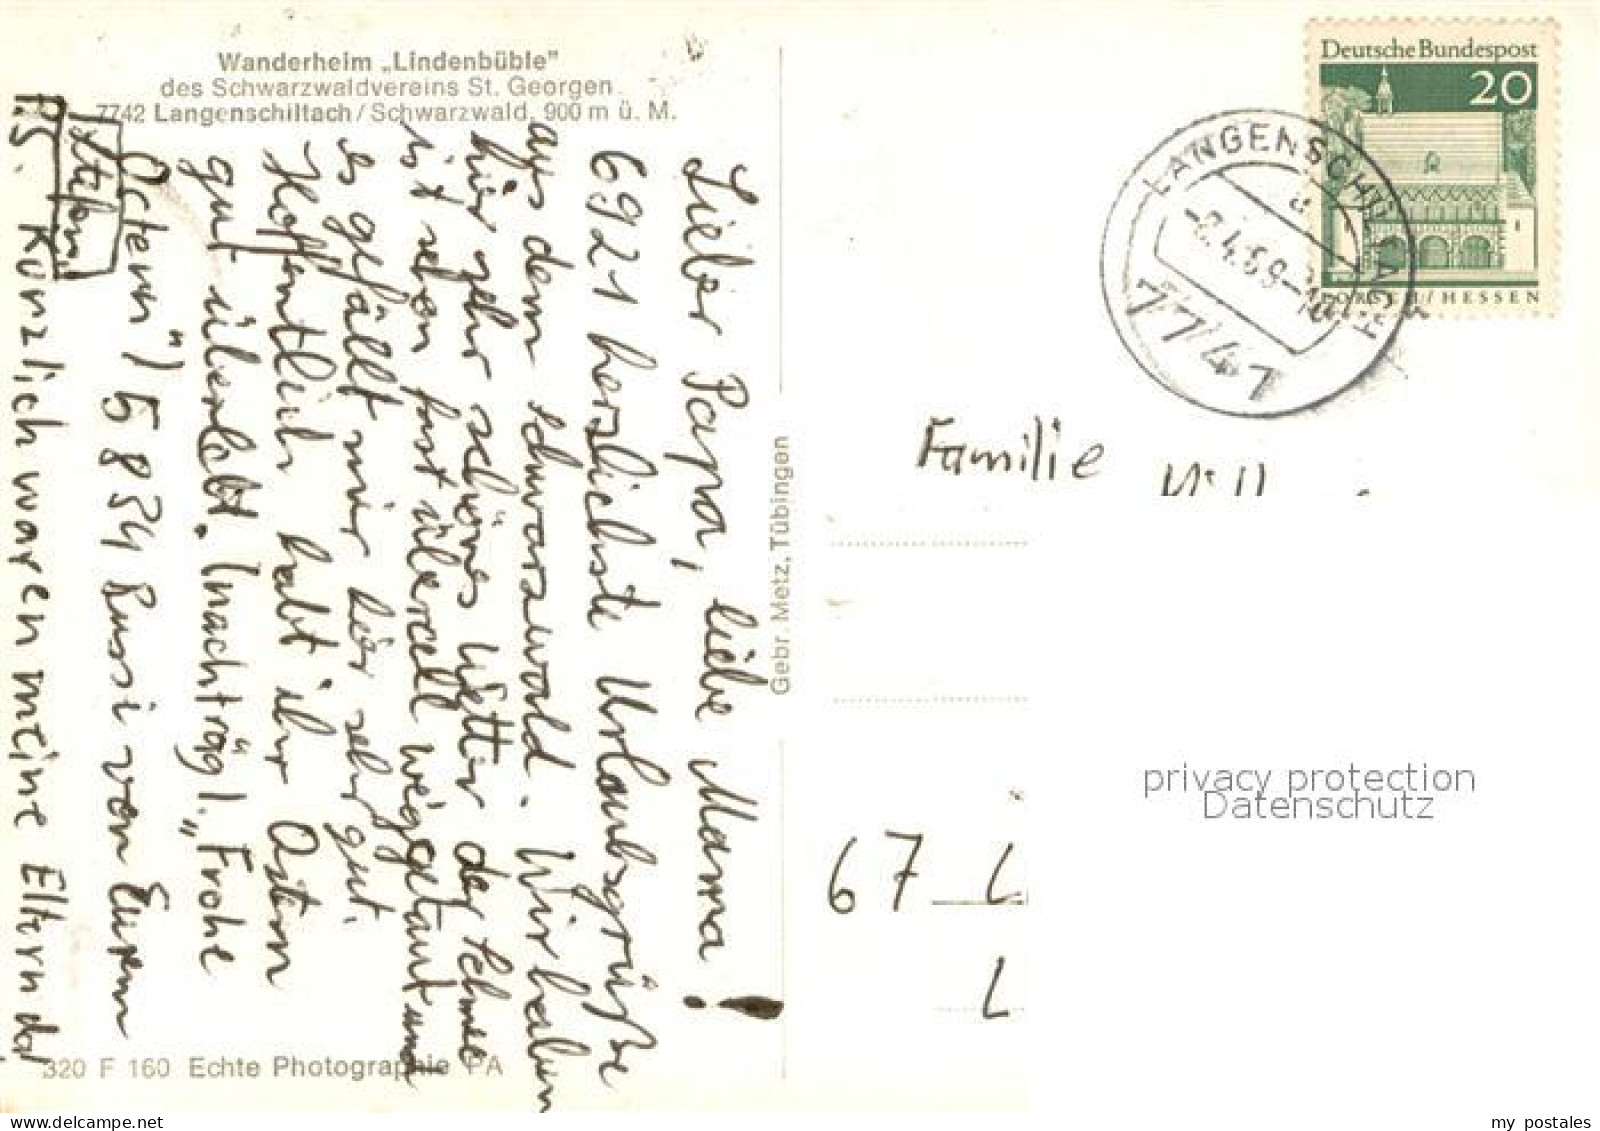 Wanderheim „Lindenbüble"
des Schwarzwaldvereins St. Georgen
7742 Langenschiltach / Schwarzwald, 900 m ü. M.
Lieber Papa, liebe Mama!
6921 herzlichste Urlaubsgrüße
aus dem Schwarzwald. Wir haben
hier sehr schönes Wetter der Schnee
ist schon fast überall weggetaut und
es gefällt mir hier sehr gut.
Hoffentlich habt ihr Ostern
gut überlebt. (nachträgl. „Frohe
Ostern") 5834 Bussi von Eurem
Stefan!
P.S. Kürzlich waren meine Eltern da!
320 F 160 Echte Photographie PA
Gebr. Metz, Tübingen
Deutsche Bundespost
20
LORSCH / HESSEN
LANGENSCHILTACH
a
-8.4.69-10
7741
Familie
67 L
L
privacy protection
Datenschutz
www.delcampe.net
my_postales